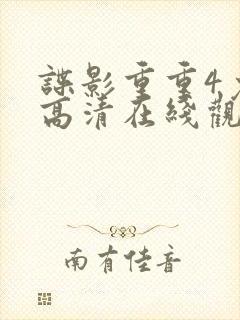 諜影重重4
高清在綫觀
南有佳音